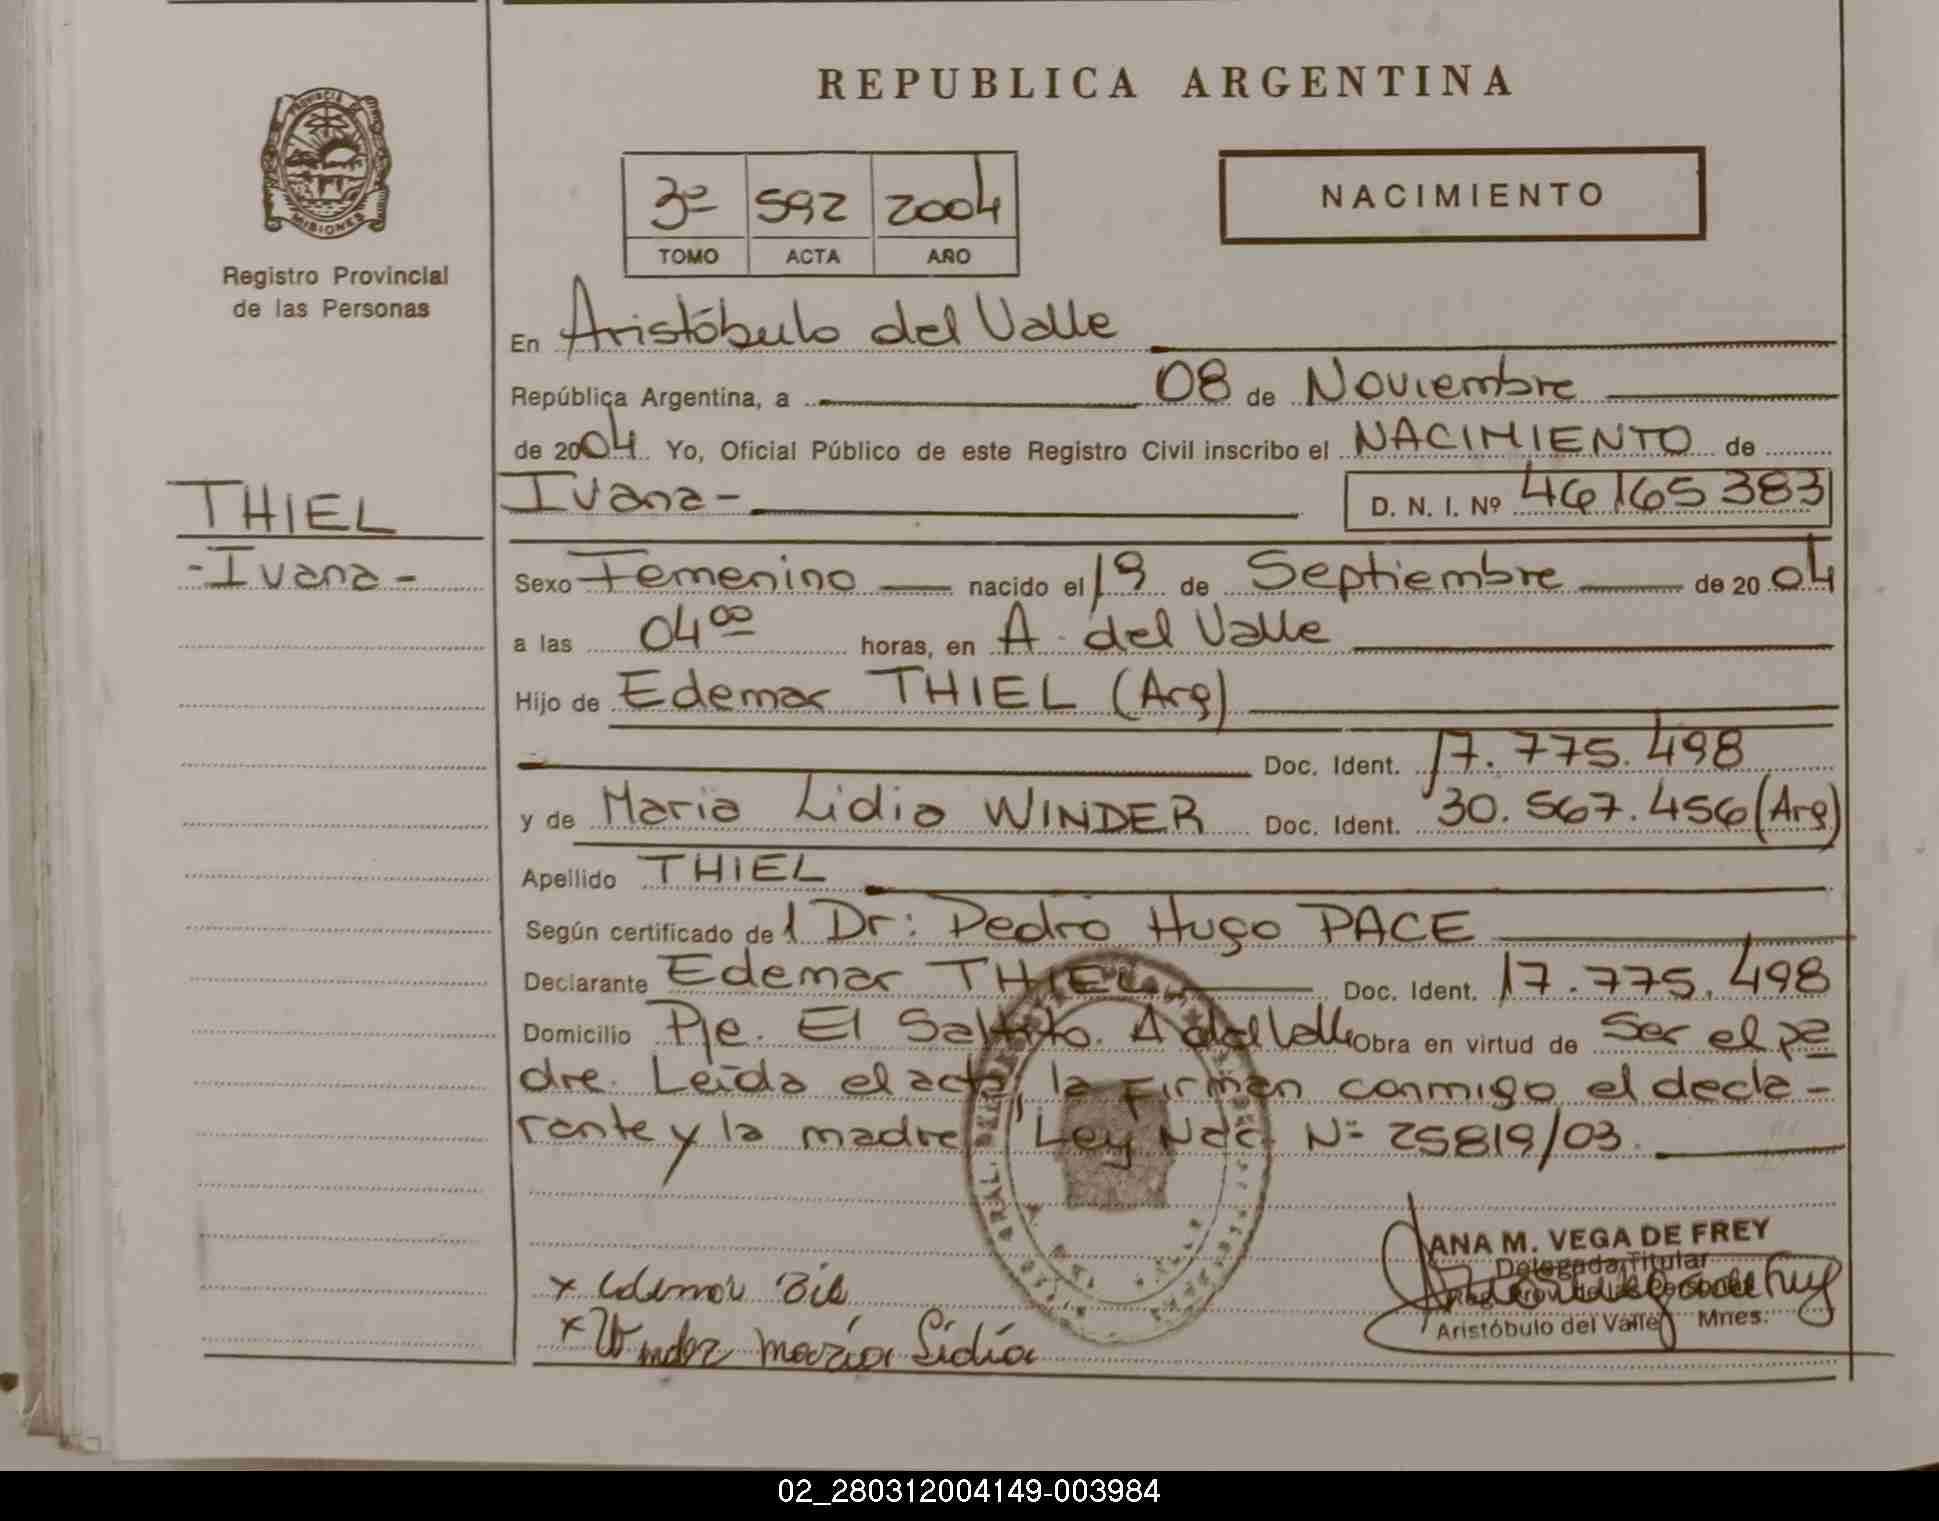 REPUBLICA ARGENTINA
PROVINCIA DE
MISIONES
Registro Provincial
de las Personas
3º 592 2004
TOMO ACTA AÑO
NACIMIENTO
En Aristóbulo del Valle
República Argentina, a 08 de Noviembre
de 2004 Yo, Oficial Público de este Registro Civil inscribo el NACIMIENTO de
THIEL
-Ivana-
Ivana- D. N. I. Nº 46165383
Sexo Femenino nacido el 19 de Septiembre de 2004
a las 04⁰⁰ horas, en A. del Valle
Hijo de Edemar THIEL (Arg)
Doc. Ident. 17.775.498
y de Maria Lidia WINDER Doc. Ident. 30.567.456 (Arg)
Apellido THIEL
Según certificado del Dr: Pedro Hugo PACE
Declarante Edemar THIEL Doc. Ident. 17.775.498
Domicilio Pje. El Saltito. A del Valle Obra en virtud de Ser el pa
dre. Leida el acta, la Firman conmigo el decla-
rante y la madre. Ley Nac. Nº 25819/03.
ANA M. VEGA DE FREY
Delegada Titular
Aristóbulo del Valle Mnes.
x Edemar
x Winder maría Lidia
02_280312004149-003984